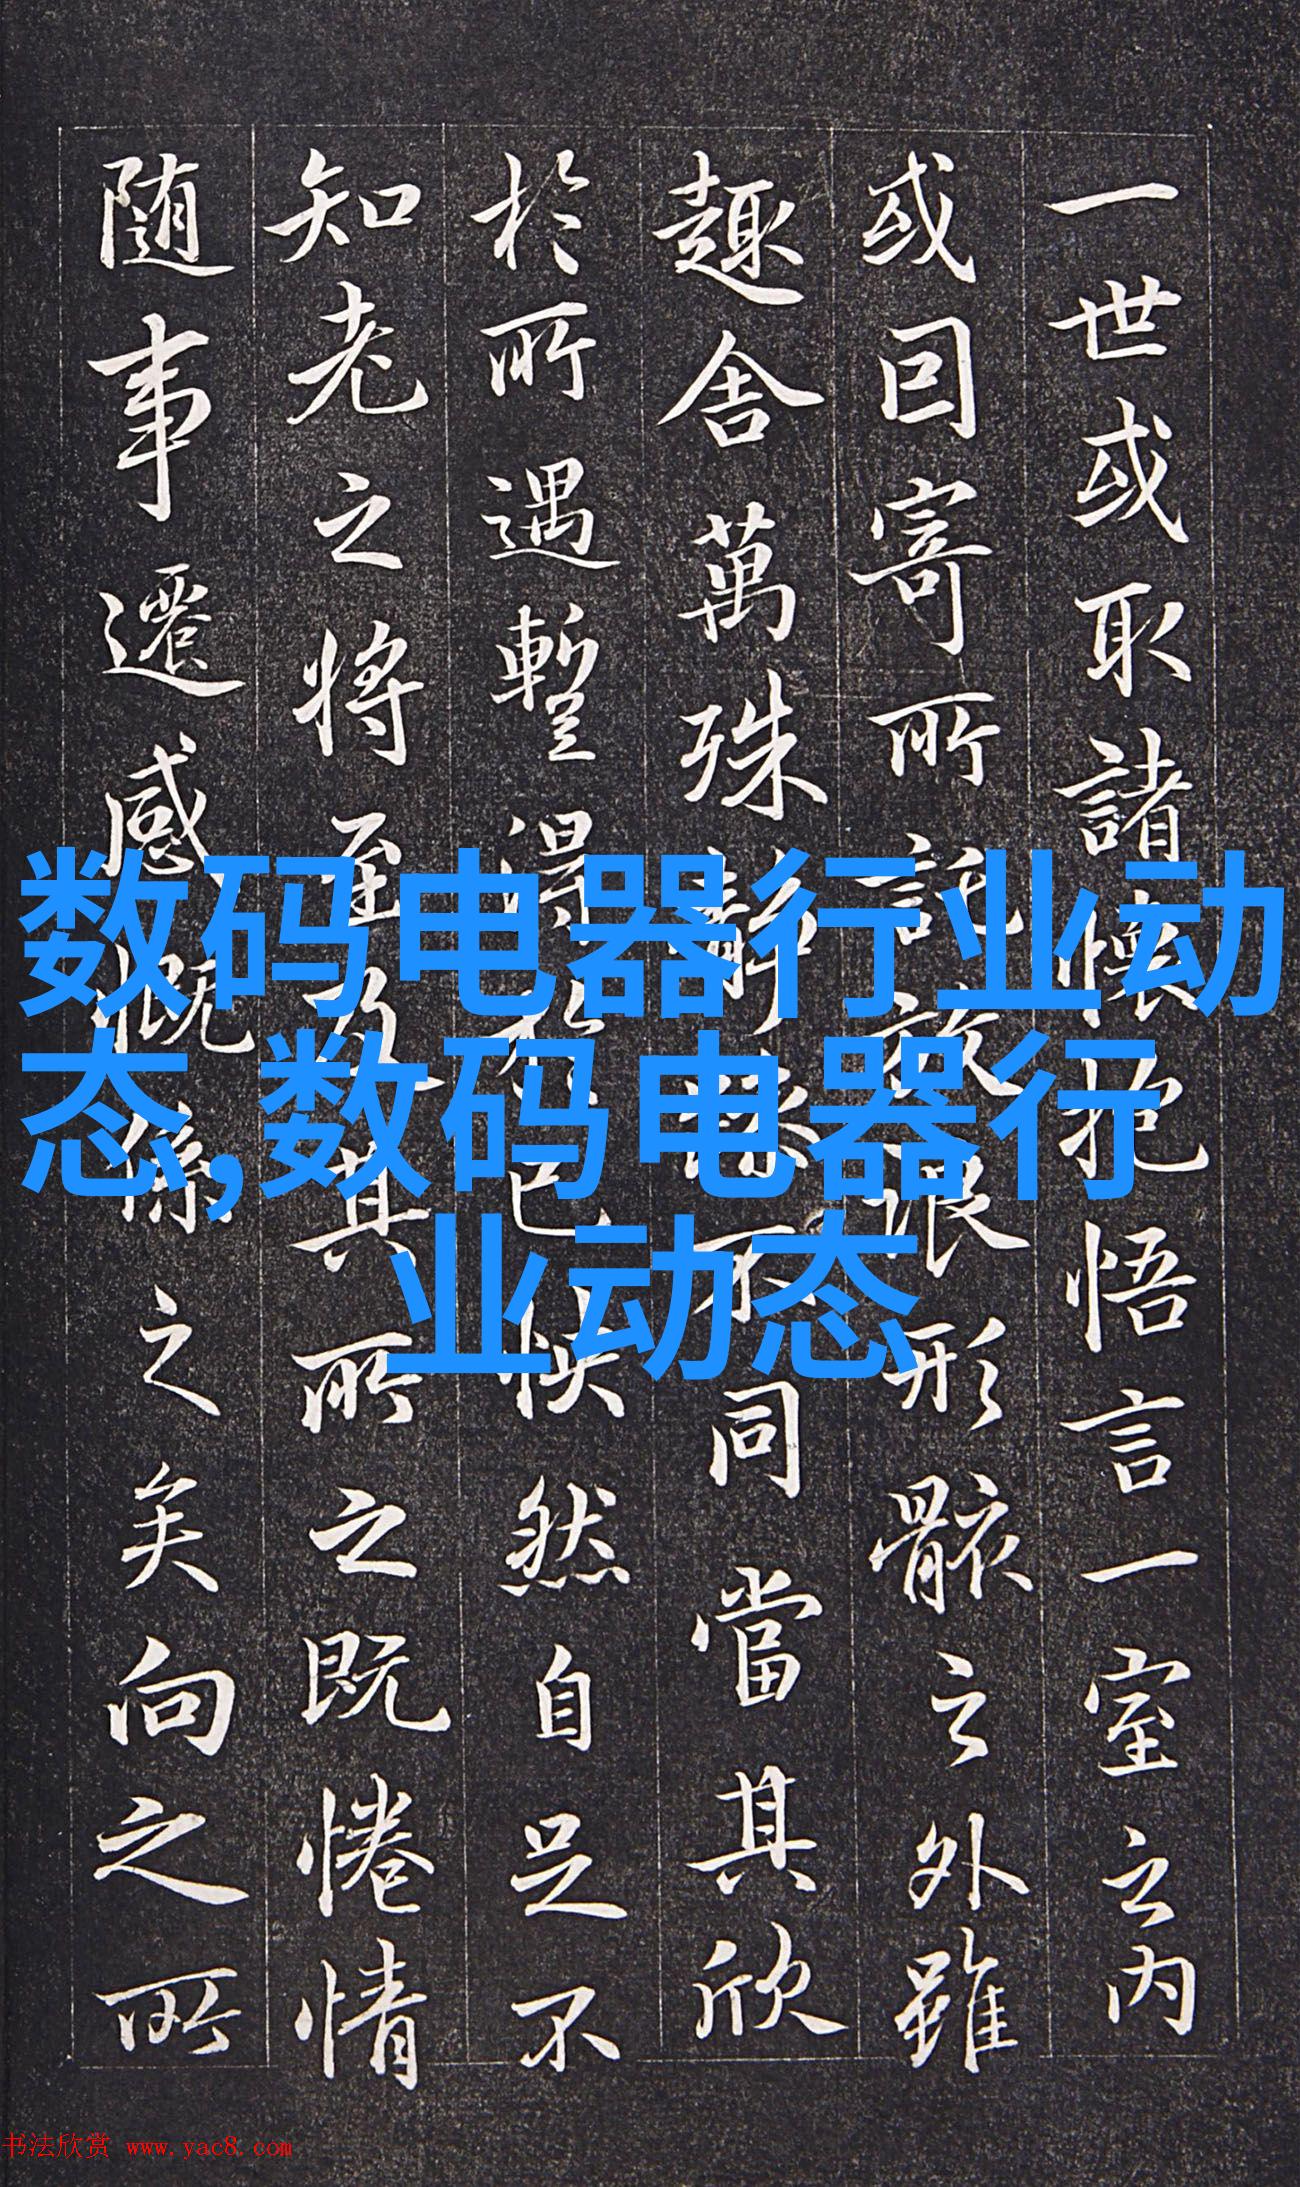 一世或取諸懷抱悟言一室之内
或因寄所託放浪形骸之外雖
趣舍萬殊靜躁不同當其欣
於所遇暫得於己怏然自足不
知老之將至及其所之既惓情
随事遷感慨係之矣向之所
数码电器行业动
态,数码电器行
业动态
书法欣赏 www.yac8.com